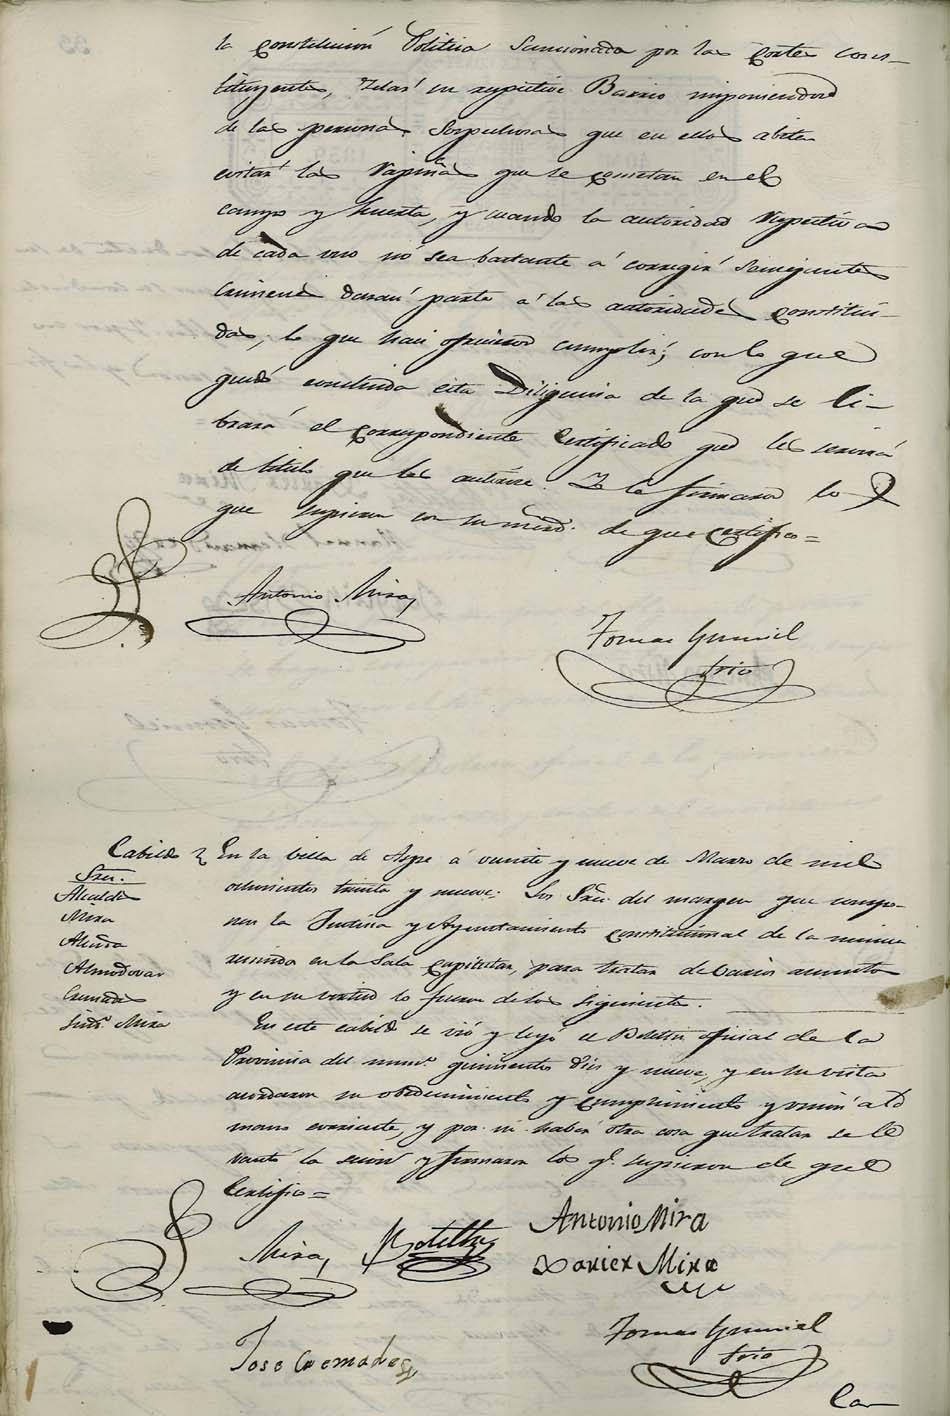 la Constitucion Politica Sancionada por las Cortes Cons-
tituyentes, Zelar en respective Barrio imponiendose
de las personas Sospechosas que en ellos abiten
evitar las rapiñas que se cometan en el
campo y huerta, y cuando la autoridad respectiva
de cada uno no sea bastante á corregir semejantes
crimenes daran parte á las autoridades constitui-
das, lo que han ofrecido cumplir; con lo que
quedó concluida esta Diligencia de la que se li-
brará el correspondiente Certificado que les servirá
de titulo que les autorize. Y lo firmaron los
que supieron con su mrd. de que certifico =
Antonio Mira
Tomas Gumiel
Srio
Cabildo
Sres.
Alcalde
Mira
Aleña
Almodovar
Cremades
Sindo. Mira
En la villa de Aspe á veinte y nueve de Marzo de mil
ochocientos treinta y nueve: Los Sres. del margen que compo-
nen la Justicia y Ayuntamiento constitucional de la misma
reunidos en la Sala capitular, para tratar de varios asuntos
y en su virtud lo fueron de los siguientes.
En este cabildo se vió y leyó el Boletin oficial de la
Provincia del numo. quinientos diez y nueve, y en su vista
acordaron su obedecimiento y cumplimiento y union al de
mano corriente, y por no haber otra cosa que tratar se le
vantó la sesion y firmaron los q. supieron de que
Certifico =
Mira
Botella
Antonio Mira
Xavier Mira
Jose Cremades
Tomas Gumiel
Srio